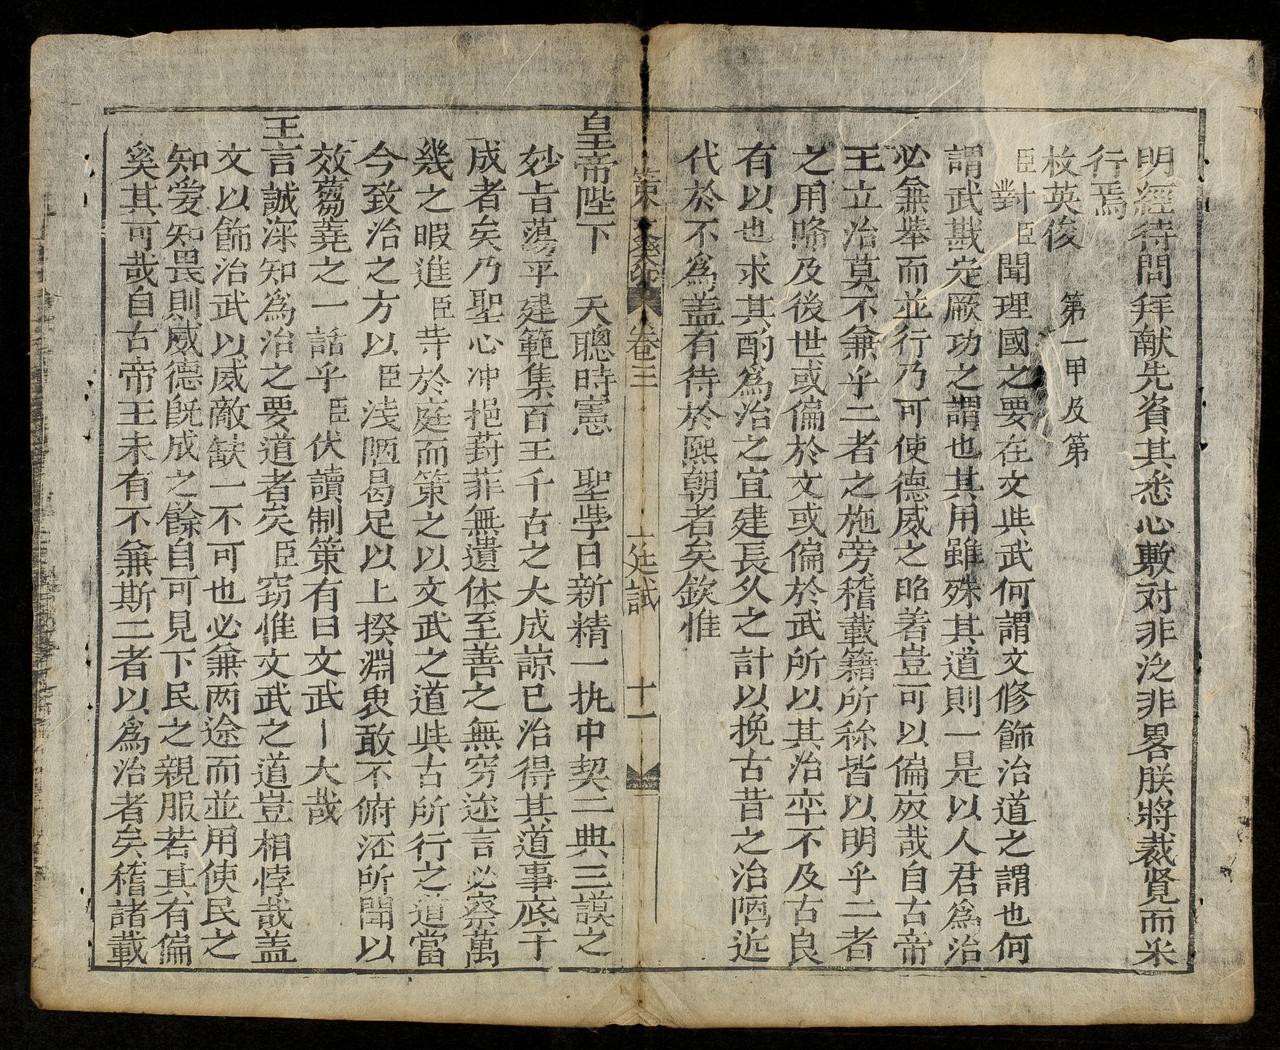 明經待問拜献先資其悉心敷对非泛非畧朕將裁覧而采
行焉
枚英俊　第一甲及第
臣對臣聞理國之要在文与武何謂文修飾治道之謂也何
謂武戡定厥功之謂也其用雖殊其道則一是以人君為治
必兼举而並行乃可使德威之昭著豈可以偏癈哉自古帝
王立治莫不兼乎二者之施旁稽載籍所称皆以明乎二者
之用降及後世或偏於文或偏於武所以其治卒不及古良
有以也求其酌為治之宜建長久之計以挽古昔之治陋近
代於不為盖有待於熙朝者矣欽惟
策文　卷三　廷試　十一
皇帝陛下　天聰時憲　聖學日新精一执中契二典三謨之
妙旨蕩平建範集百王千古之大成諒已治得其道事底于
成者矣乃聖心冲挹葑菲無遺体至善之無穷迩言必察萬
幾之暇進臣等於庭而策之以文武之道与古所行之道當
今致治之方以臣浅陋曷足以上揆淵衷敢不俯述所聞以
效蒭蕘之一話乎臣伏讀制策有曰文武〡大哉
王言誠深知為治之要道者矣臣窃惟文武之道豈相悖哉盖
文以飾治武以威敵缺一不可也必兼两途而並用使民之
知爱知畏則威德既成之餘自可見下民之親服若其有偏
奚其可哉自古帝王未有不兼斯二者以為治者矣稽諸載